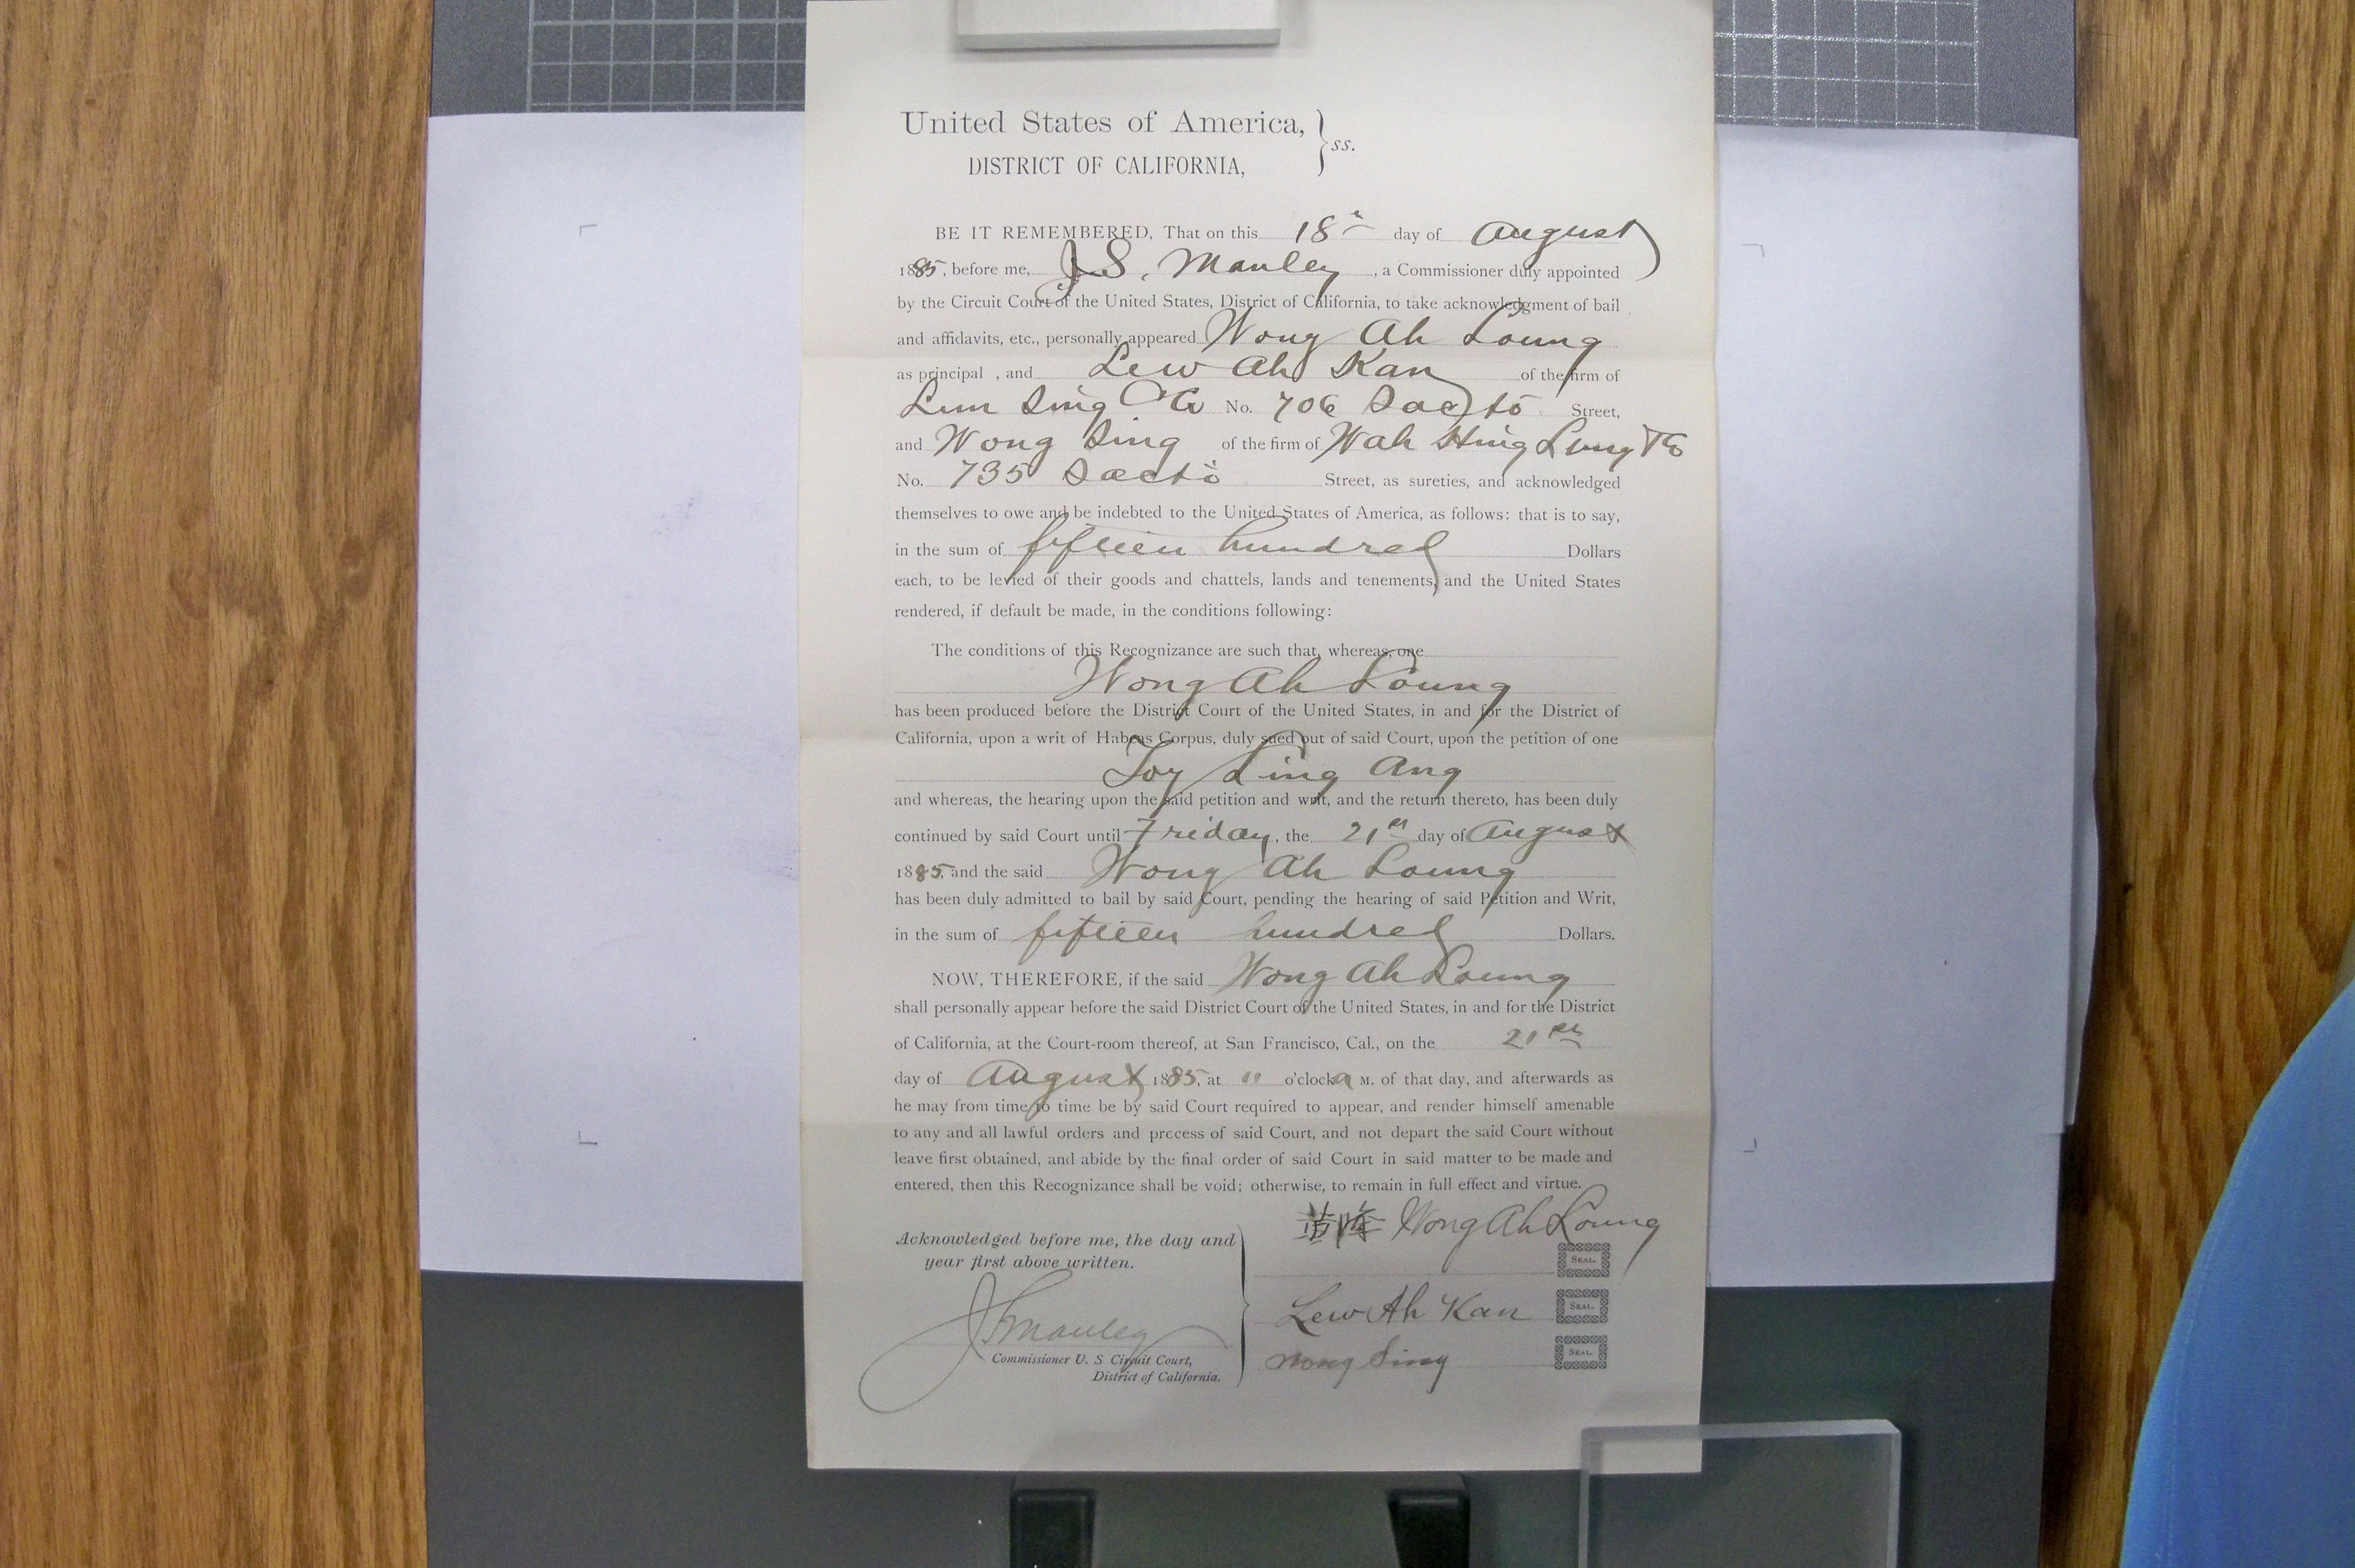 United States of America, } ss.
DISTRICT OF CALIFORNIA,
BE IT REMEMBERED, That on this 18th day of August
1885, before me, J. S. Manley, a Commissioner duly appointed
by the Circuit Court of the United States, District of California, to take acknowledgment of bail
and affidavits, etc., personally appeared Wong Ah Loung
as principal , and Lew Ah Kan of the firm of
Lun Sing & Co No. 706 Sacto Street,
and Wong Sing of the firm of Wah Hing Lung & Co
No. 735 Sacto Street, as sureties, and acknowledged
themselves to owe and be indebted to the United States of America, as follows: that is to say,
in the sum of fifteen hundred Dollars
each, to be levied of their goods and chattels, lands and tenements, and the United States
rendered, if default be made, in the conditions following:
The conditions of this Recognizance are such that, whereas, one
Wong Ah Loung
has been produced before the District Court of the United States, in and for the District of
California, upon a writ of Habeas Corpus, duly sued out of said Court, upon the petition of one
Toy Ling Ang
and whereas, the hearing upon the said petition and writ, and the return thereto, has been duly
continued by said Court until Friday, the 21st day of August
1885, and the said Wong Ah Loung
has been duly admitted to bail by said Court, pending the hearing of said Petition and Writ,
in the sum of fifteen hundred Dollars.
NOW, THEREFORE, if the said Wong Ah Loung
shall personally appear before the said District Court of the United States, in and for the District
of California, at the Court-room thereof, at San Francisco, Cal., on the 21st
day of August 1885, at 11 o'clock a M. of that day, and afterwards as
he may from time to time be by said Court required to appear, and render himself amenable
to any and all lawful orders and process of said Court, and not depart the said Court without
leave first obtained, and abide by the final order of said Court in said matter to be made and
entered, then this Recognizance shall be void; otherwise, to remain in full effect and virtue.
黄隆 Wong Ah Loung
Acknowledged before me, the day and
year first above written.
SEAL.
J S Manley
Lew Ah Kan SEAL.
Commissioner U. S. Circuit Court,
District of California.
Wong Sing SEAL.